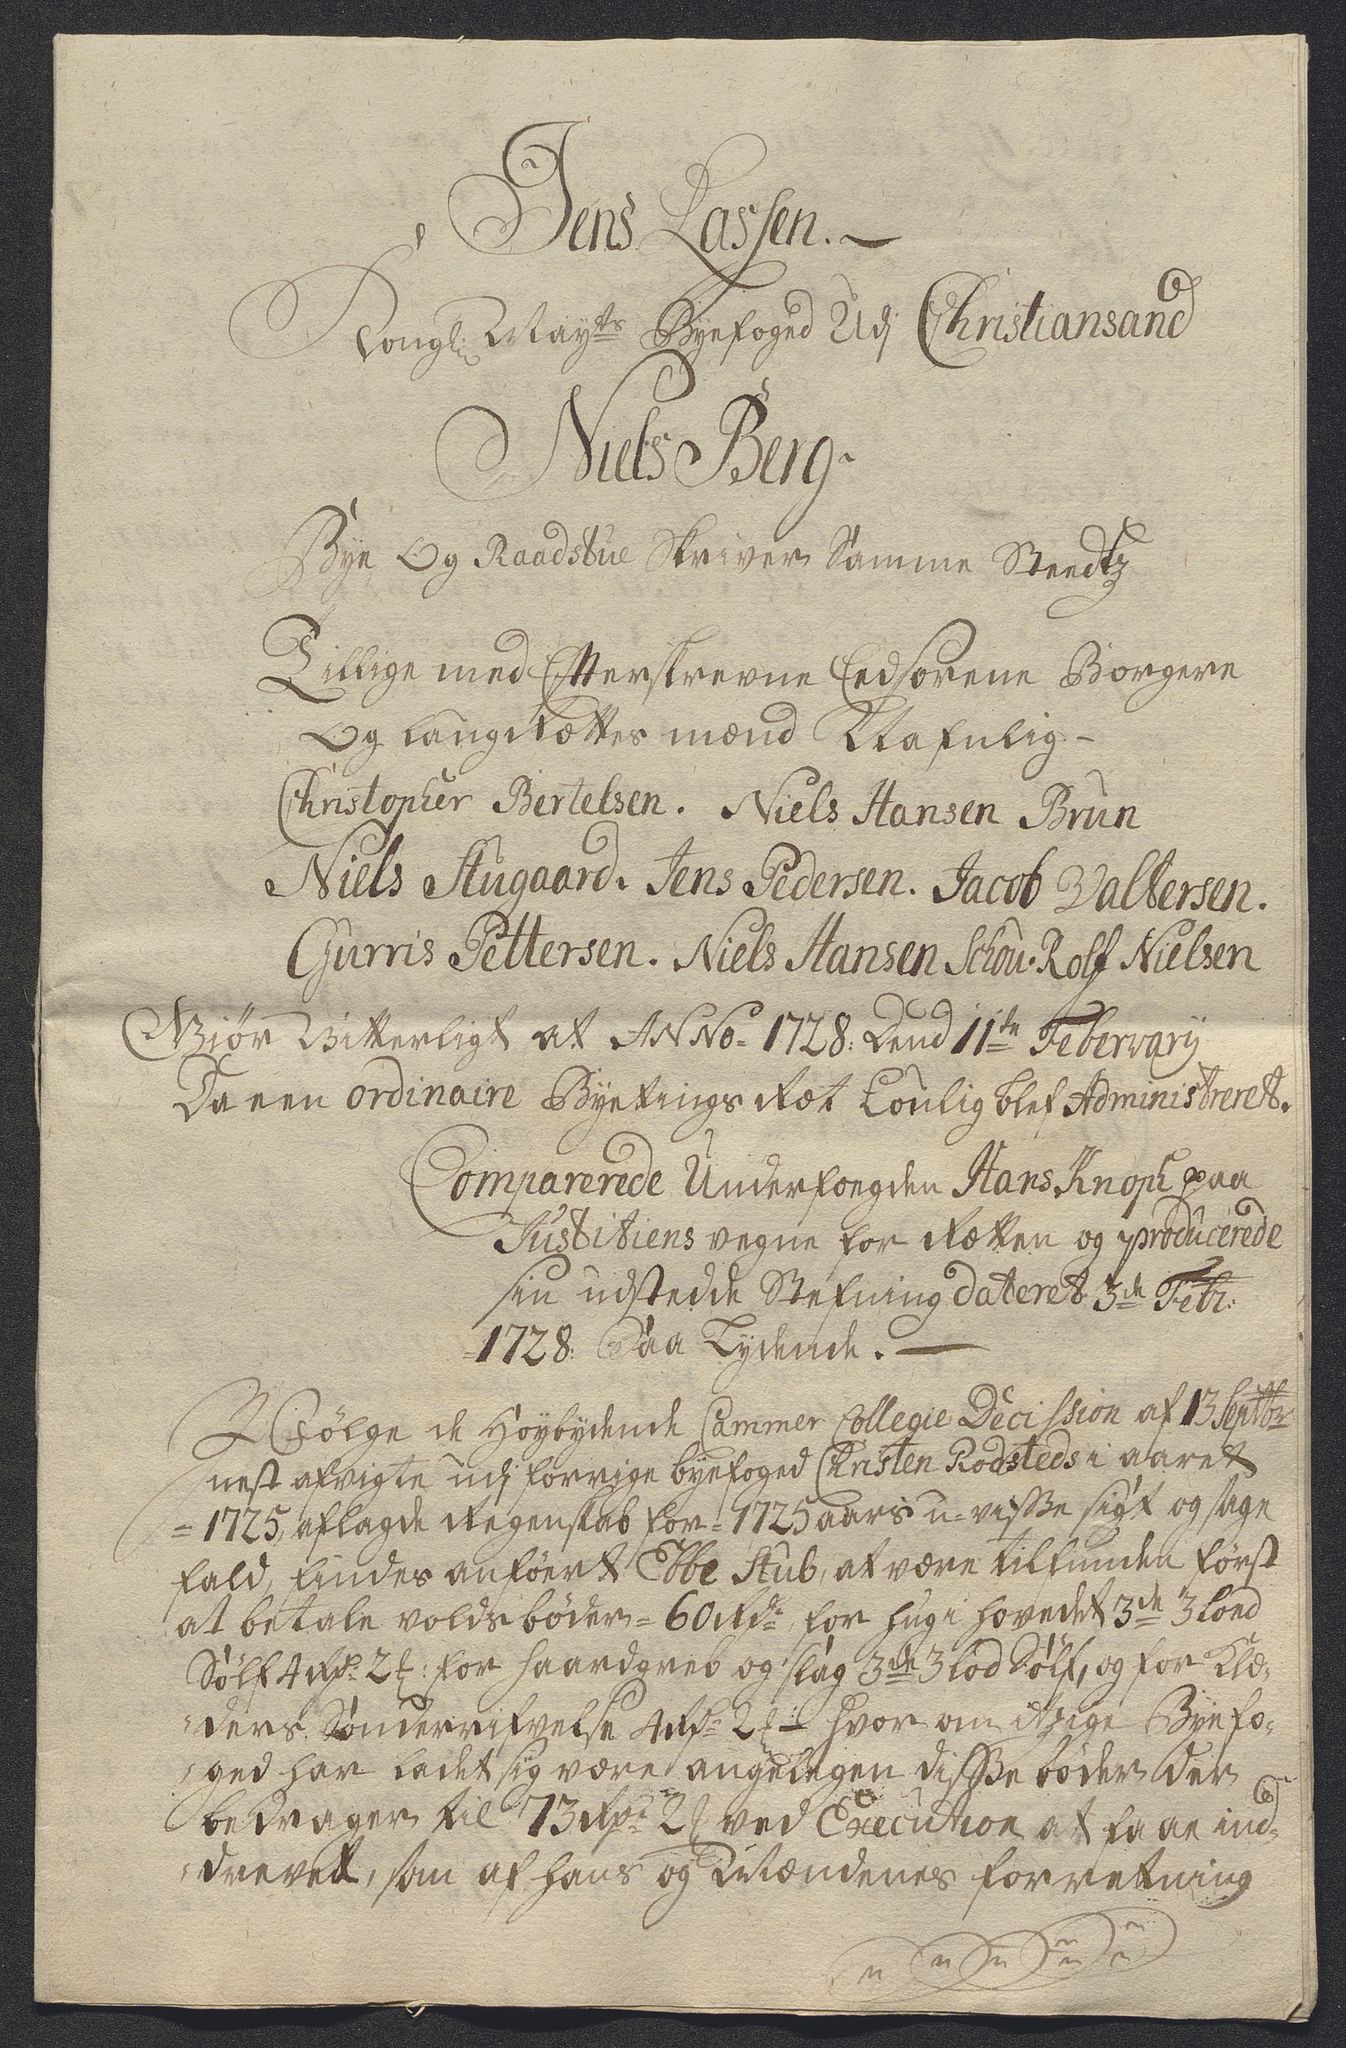 Jens Lassen.
Kongl: Mayts Byefoged Udj Christiansand
Niels Berg.
Bye Og Raadstue Skriver Samme Steedtz
Tillige med Efterskrevne Eedsorene Borgere
Og Laugrættes mænd Nafnlig-
Christopher Bertelsen. Niels Hansen Brun
Niels Augaard. Jens Pedersen. Jacob Valtersen.
Gurris Pettersen. Niels Hansen Schou. Rolf Nielsen
Giør Vitterligt at ANNo. 1728. Dend 11te Febervarij
Da een ordinaire Byetings Ræt Loulig blef Administreret.
Comparerede Underfoegden Hans Knoph paa
Justitiens vegne for Rætten og producerede
sin udstedde Stefning dateret 3de Febr:
1728. Saa Lydende.
I Følge de Høybydende Cammer Collegie Decission af 13 Septbr
nest afvigte udj forrige byefoged Christen Rodsteds i aaret
=1725, aflagde Regenskab for =1725 aars u=visse sigt og sage
fald, findes anføert Ebbe Stub, at være tilfunden først
at betale voldsbøder = 60 Rdr. for hug i hovedet 3de 3 loed
Sølf 4 Rdr. 2 for haardgreb og slag 3de 3 lod Sølf, og for Klæ-
ders Sønderrifvelse 4 Rdr. 2 hvor om itzige Byefo-
ged har ladet sig være angelegen disse bøder der
bedrager til 73 Rdr. 2 ved Execution at faae ind-
drevet, som af hans og Mændenes forretning